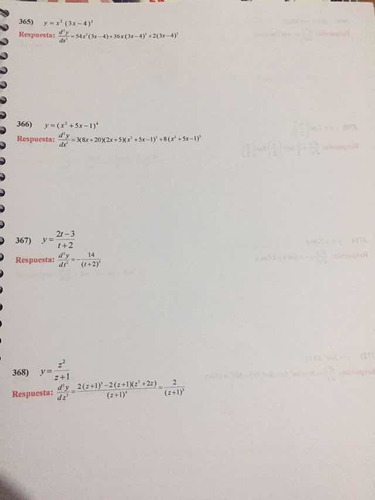 365) y = x² (3x − 4)³
Respuesta: d²y/dx² = 54x²(3x − 4) + 36x(3x − 4)² + 2(3x − 4)³
366) y = (x² + 5x − 1)⁴
Respuesta: d²y/dx² = 3(8x + 20)(2x + 5)(x² + 5x − 1)² + 8(x² + 5x − 1)³
367) y = (2t − 3)/(t + 2)
Respuesta: d²y/dt² = − 14/(t + 2)³
368) y = z²/(z + 1)
Respuesta: d²y/dz² = (2(z + 1)³ − 2(z + 1)(z² + 2z))/(z + 1)⁴ = 2/(z + 1)³